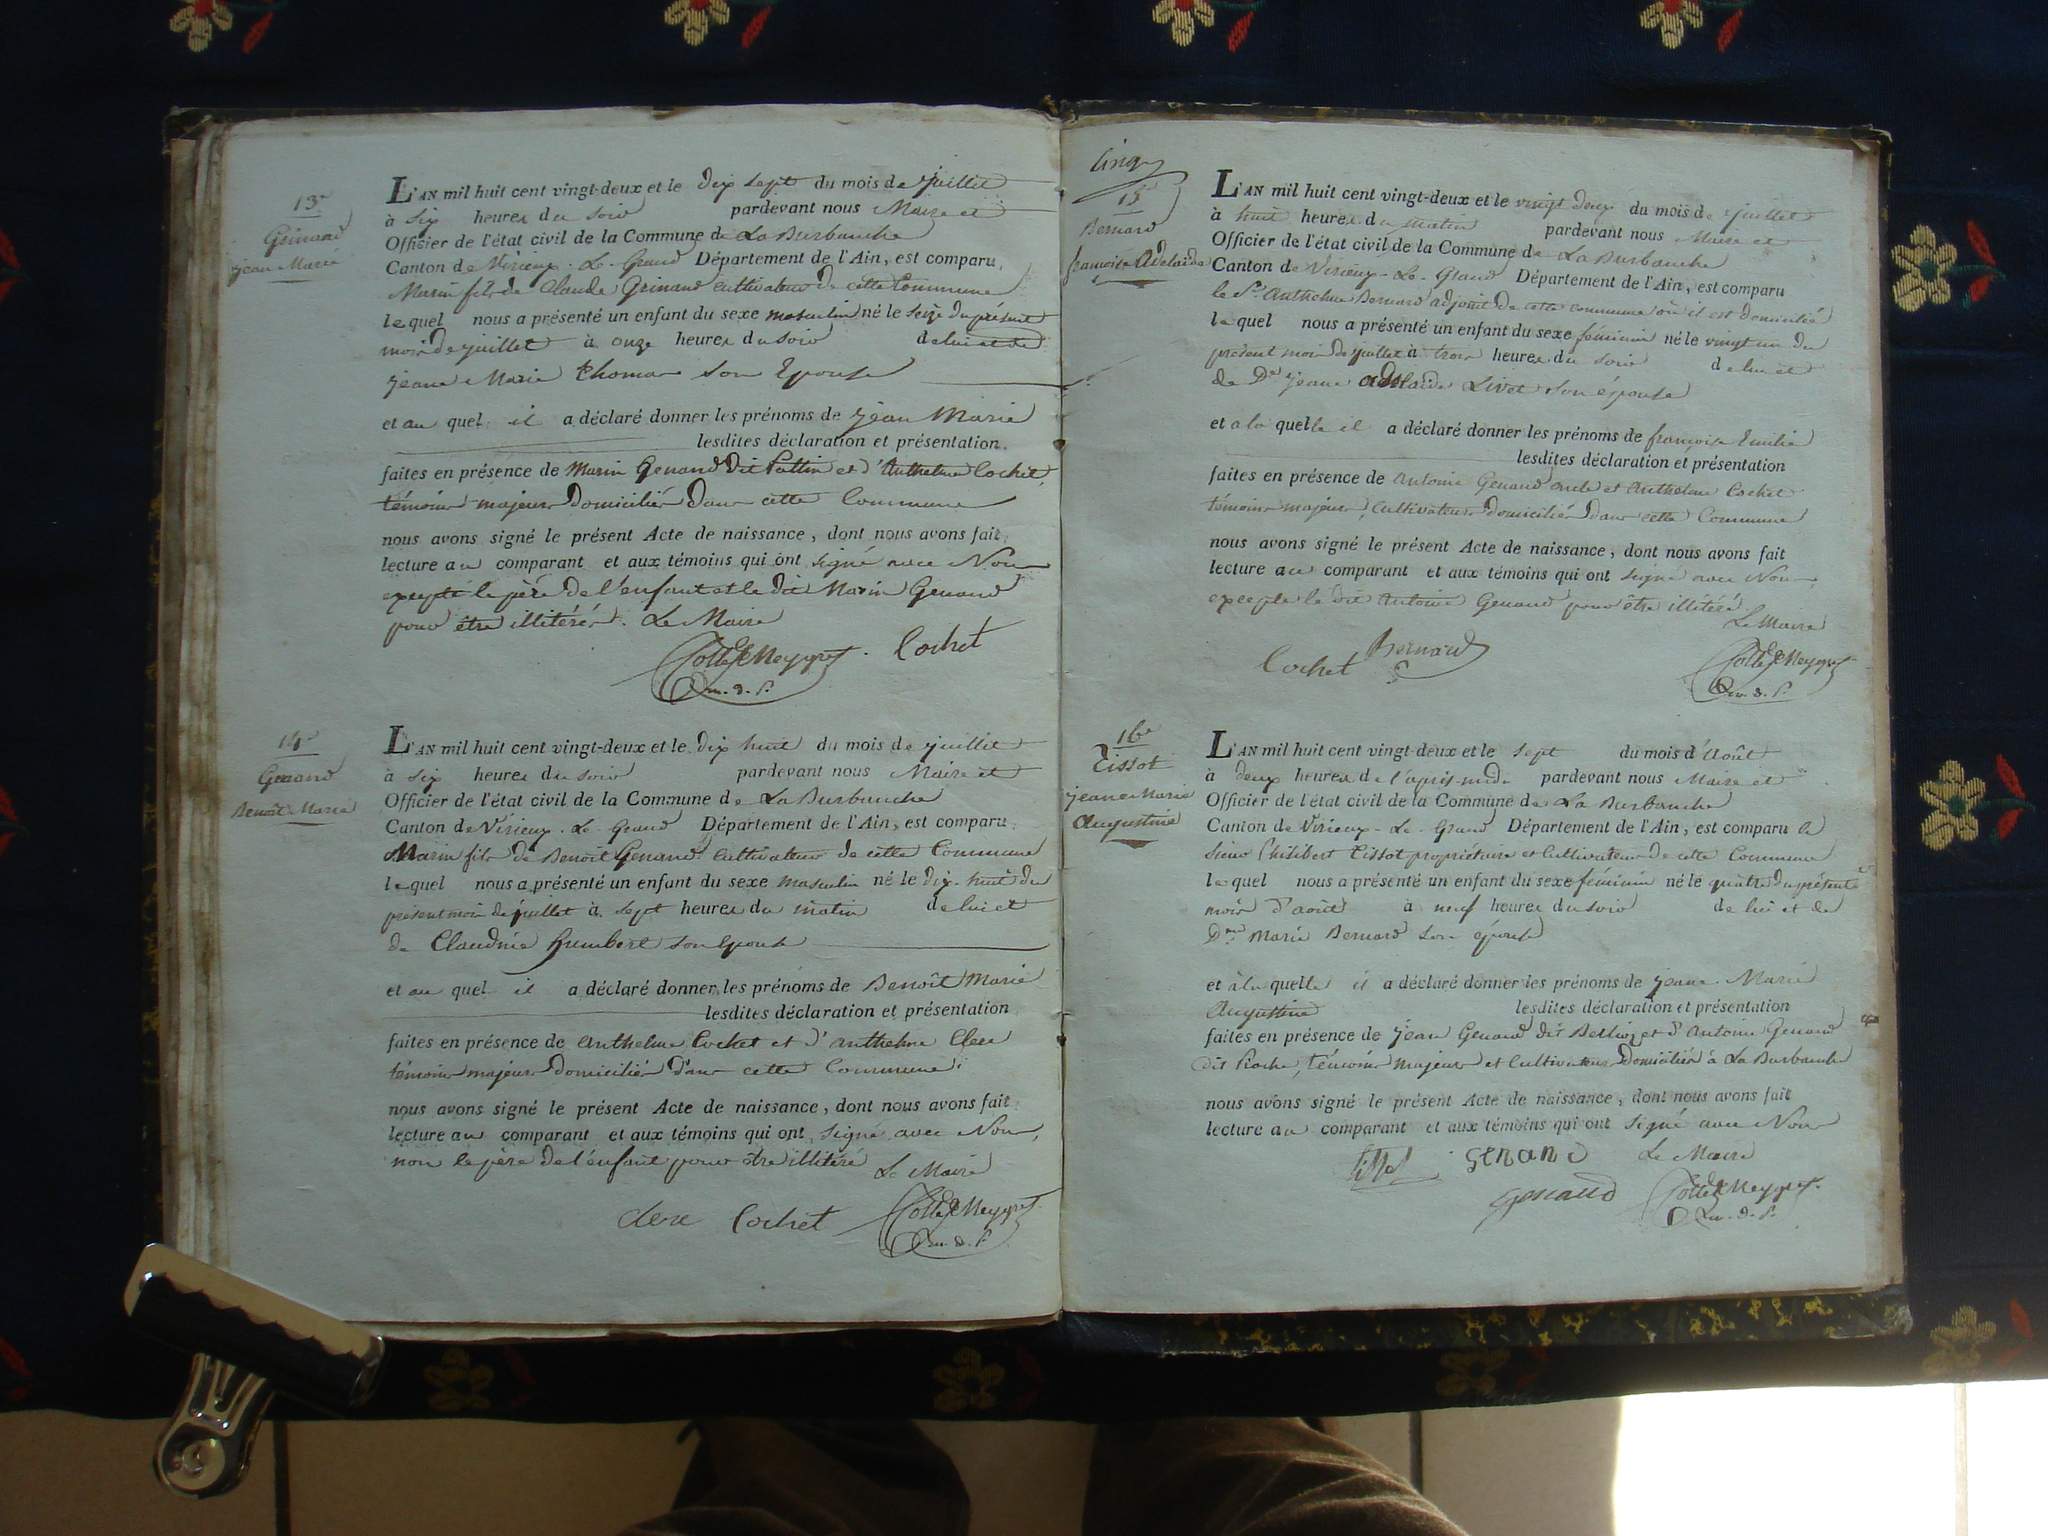 13e
Grinand
jean Marie
L'AN mil huit cent vingt-deux et le dix sept du mois de juillet
à six heures du soir pardevant nous Maire et
Officier de l'état civil de la Commune de La Burbanche
Canton de Virieux-Le-Grand Département de l'Ain, est comparu
Marin fils de Claude Grinand cultivateur de cette Commune
lequel nous a présenté un enfant du sexe masculin né le seize du présent
mois de juillet à onze heures du soir de lui et de
jeane Marie thomas son Epouse
et au quel il a déclaré donner les prénoms de jean Marie
lesdites déclaration et présentation
faites en présence de Marin Genand dit Pattin et d'Anthelme Cochet,
témoins majeurs domiciliés dans cette Commune
nous avons signé le présent Acte de naissance, dont nous avons fait
lecture au comparant et aux témoins qui ont signé avec Nous
excepté le père de l'enfant et le dit Marin Genand
pour être illitérés. Le Maire
Cochet
14e
Genand
Benoît Marie
L'AN mil huit cent vingt-deux et le dix huit du mois de juillet
à six heures du soir pardevant nous Maire et
Officier de l'état civil de la Commune de La Burbanche
Canton de Virieux-Le-Grand Département de l'Ain, est comparu
Marin fils de Benoît Genand cultivateur de cette Commune
lequel nous a présenté un enfant du sexe masculin né le dix-huit du
présent mois de juillet à sept heures du matin de lui et
de Claudine humbert son Epouse
et au quel il a déclaré donner les prénoms de Benoît Marie
lesdites déclaration et présentation
faites en présence de Anthelme Cochet et d'Anthelme Clerc
témoins majeurs domiciliés dans cette Commune
nous avons signé le présent Acte de naissance, dont nous avons fait
lecture au comparant et aux témoins qui ont signé avec Nous,
non le père de l'enfant pour être illitéré Le Maire
clerc Cochet
cinq
15
Bernard
françoise Adelaide
L'AN mil huit cent vingt-deux et le vingt deux du mois de juillet
à huit heures du matin pardevant nous Maire et
Officier de l'état civil de la Commune de La Burbanche
Canton de Virieux-Le-Grand Département de l'Ain, est comparu
le Sr Anthelme Bernard adjoint de cette commune où il est domicilié
lequel nous a présenté un enfant du sexe féminin né le vingt un du
présent mois de juillet à trois heures du soir de lui et
de De jeane adelaide Livet son épouse
et a la quelle il a déclaré donner les prénoms de françoise Emilie
lesdites déclaration et présentation
faites en présence de Antoine Genand et Anthelme Cochet
témoins majeurs, cultivateurs domiciliés dans cette Commune
nous avons signé le présent Acte de naissance, dont nous avons fait
lecture au comparant et aux témoins qui ont signé avec Nous
excepté le dit Antoine Genand pour être illitéré
Le Maire
Cochet Bernard
16e
Tissot
jeane Marie
Augustine
L'AN mil huit cent vingt-deux et le sept du mois d'Août
à deux heures de l'après-midi pardevant nous Maire et
Officier de l'état civil de la Commune de La Burbanche
Canton de Virieux-Le-Grand Département de l'Ain, est comparu le
sieur Philibert Tissot propriétaire et Cultivateur de cette Commune
lequel nous a présenté un enfant du sexe féminin né le quatre du présent
mois d'août à neuf heures du soir de lui et de
Dme Marie Bernard son epouse
et à la quelle il a déclaré donner les prénoms de jeane Marie
Augustine lesdites déclaration et présentation
faites en présence de jean Genand dit Berlioz et d'Antoine Genand
dit Roche, témoins majeurs et Cultivateurs domiciliés à La Burbanche
nous avons signé le présent Acte de naissance, dont nous avons fait
lecture au comparant et aux témoins qui ont signé avec Nous
Tissot GENAND Le Maire
Genand